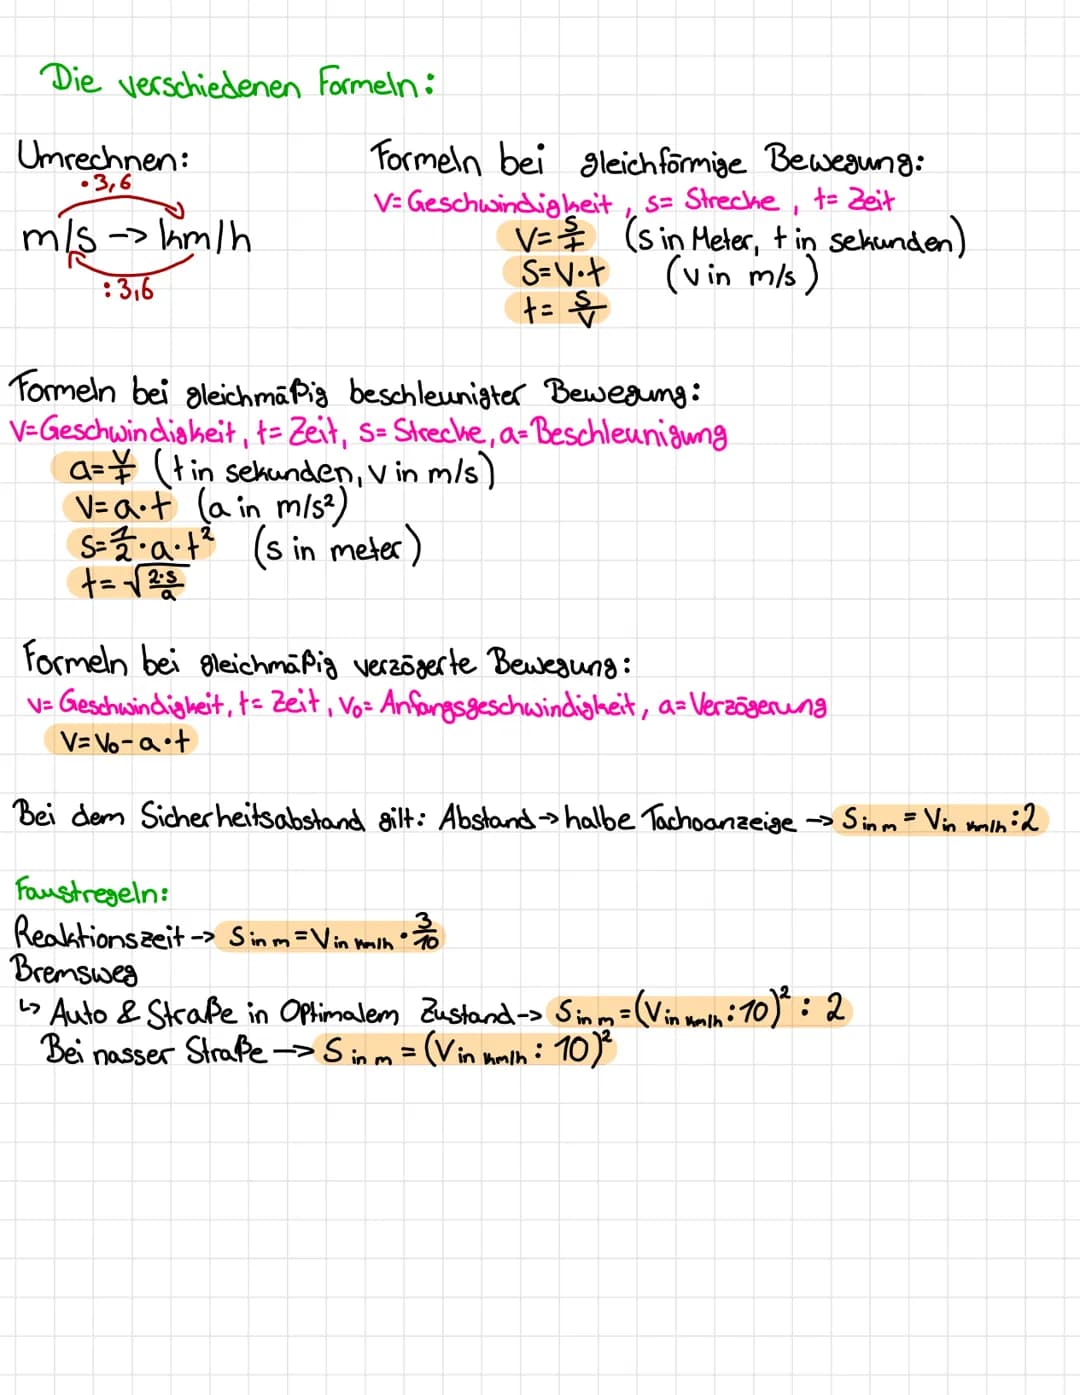 Die verschiedenen Formeln:
Umrechnen:
·3,6
m/s -> km/h
:3,6
Formeln bei gleichförmige Bewegung:
V= Geschwindigkeit, s= Strecke, t= Zeit
V= s/t (s in Meter, t in sekunden)
S=V·t (v in m/s)
t= s/v
Formeln bei gleichmäßig beschleunigter Bewegung:
V=Geschwindigkeit, t= Zeit, s= Strecke, a= Beschleunigung
a= v/t (t in sekunden, v in m/s)
V= a·t (a in m/s²)
S= 1/2·a·t² (s in meter)
t= √2·s/a
Formeln bei gleichmäßig verzögerte Bewegung:
v= Geschwindigkeit, t= Zeit, V₀= Anfangsgeschwindigkeit, a= Verzögerung
V= V₀-a·t
Bei dem Sicherheitsabstand gilt: Abstand -> halbe Tachoanzeige -> S in m = V in km/h :2
Faustregeln:
Reaktionszeit -> S in m = V in km/h · 3/10
Bremsweg
↳ Auto & Straße in Optimalem Zustand -> S in m = (V in km/h : 10)² : 2
Bei nasser Straße -> S in m = (V in km/h : 10)²